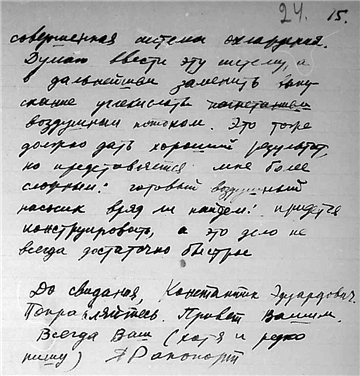 24. 15.
совершенная система охлаждения.
Думаю ввести эту систему, а
в дальнейшем заменить
скание углекислоты
воздушным потоком. Это тоже
должно дать хороший результат,
но представляется мне более
сложным: готовый воздушный
насосик вряд ли найдем: придется
конструировать, а это дело не
всегда достаточно быстрое
До свидания, Константин Эдуардович.
Поправляйтесь. Привет Вашим.
Всегда Ваш (хотя и редко
пишу) Я Рапопорт